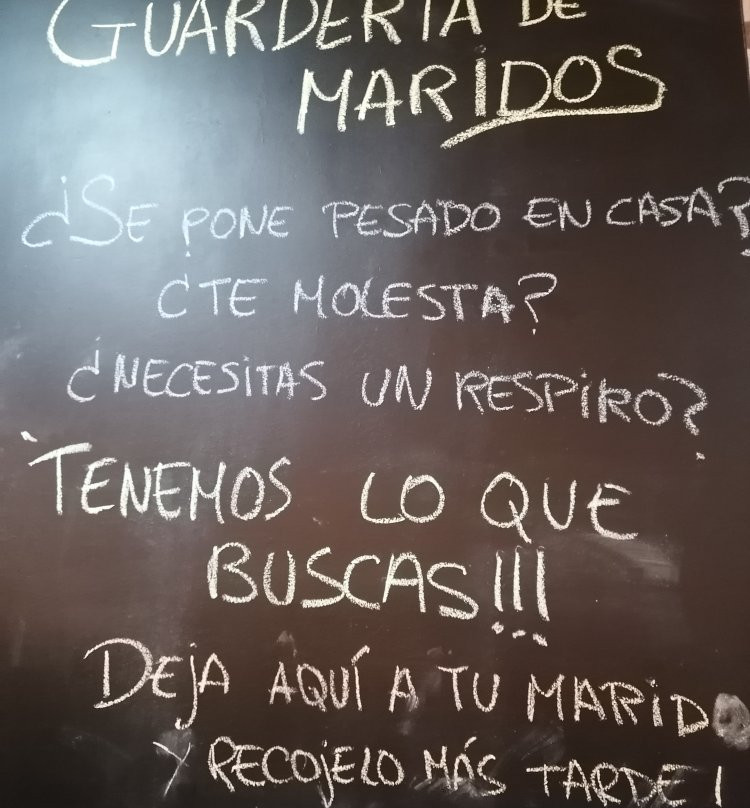 GUARDERIA DE
MARIDOS
¿SE PONE PESADO EN CASA?
¿TE MOLESTA?
¿NECESITAS UN RESPIRO?
TENEMOS LO QUE
BUSCAS!!!
DEJA AQUÍ A TU MARIDO
Y RECOJELO MÁS TARDE!